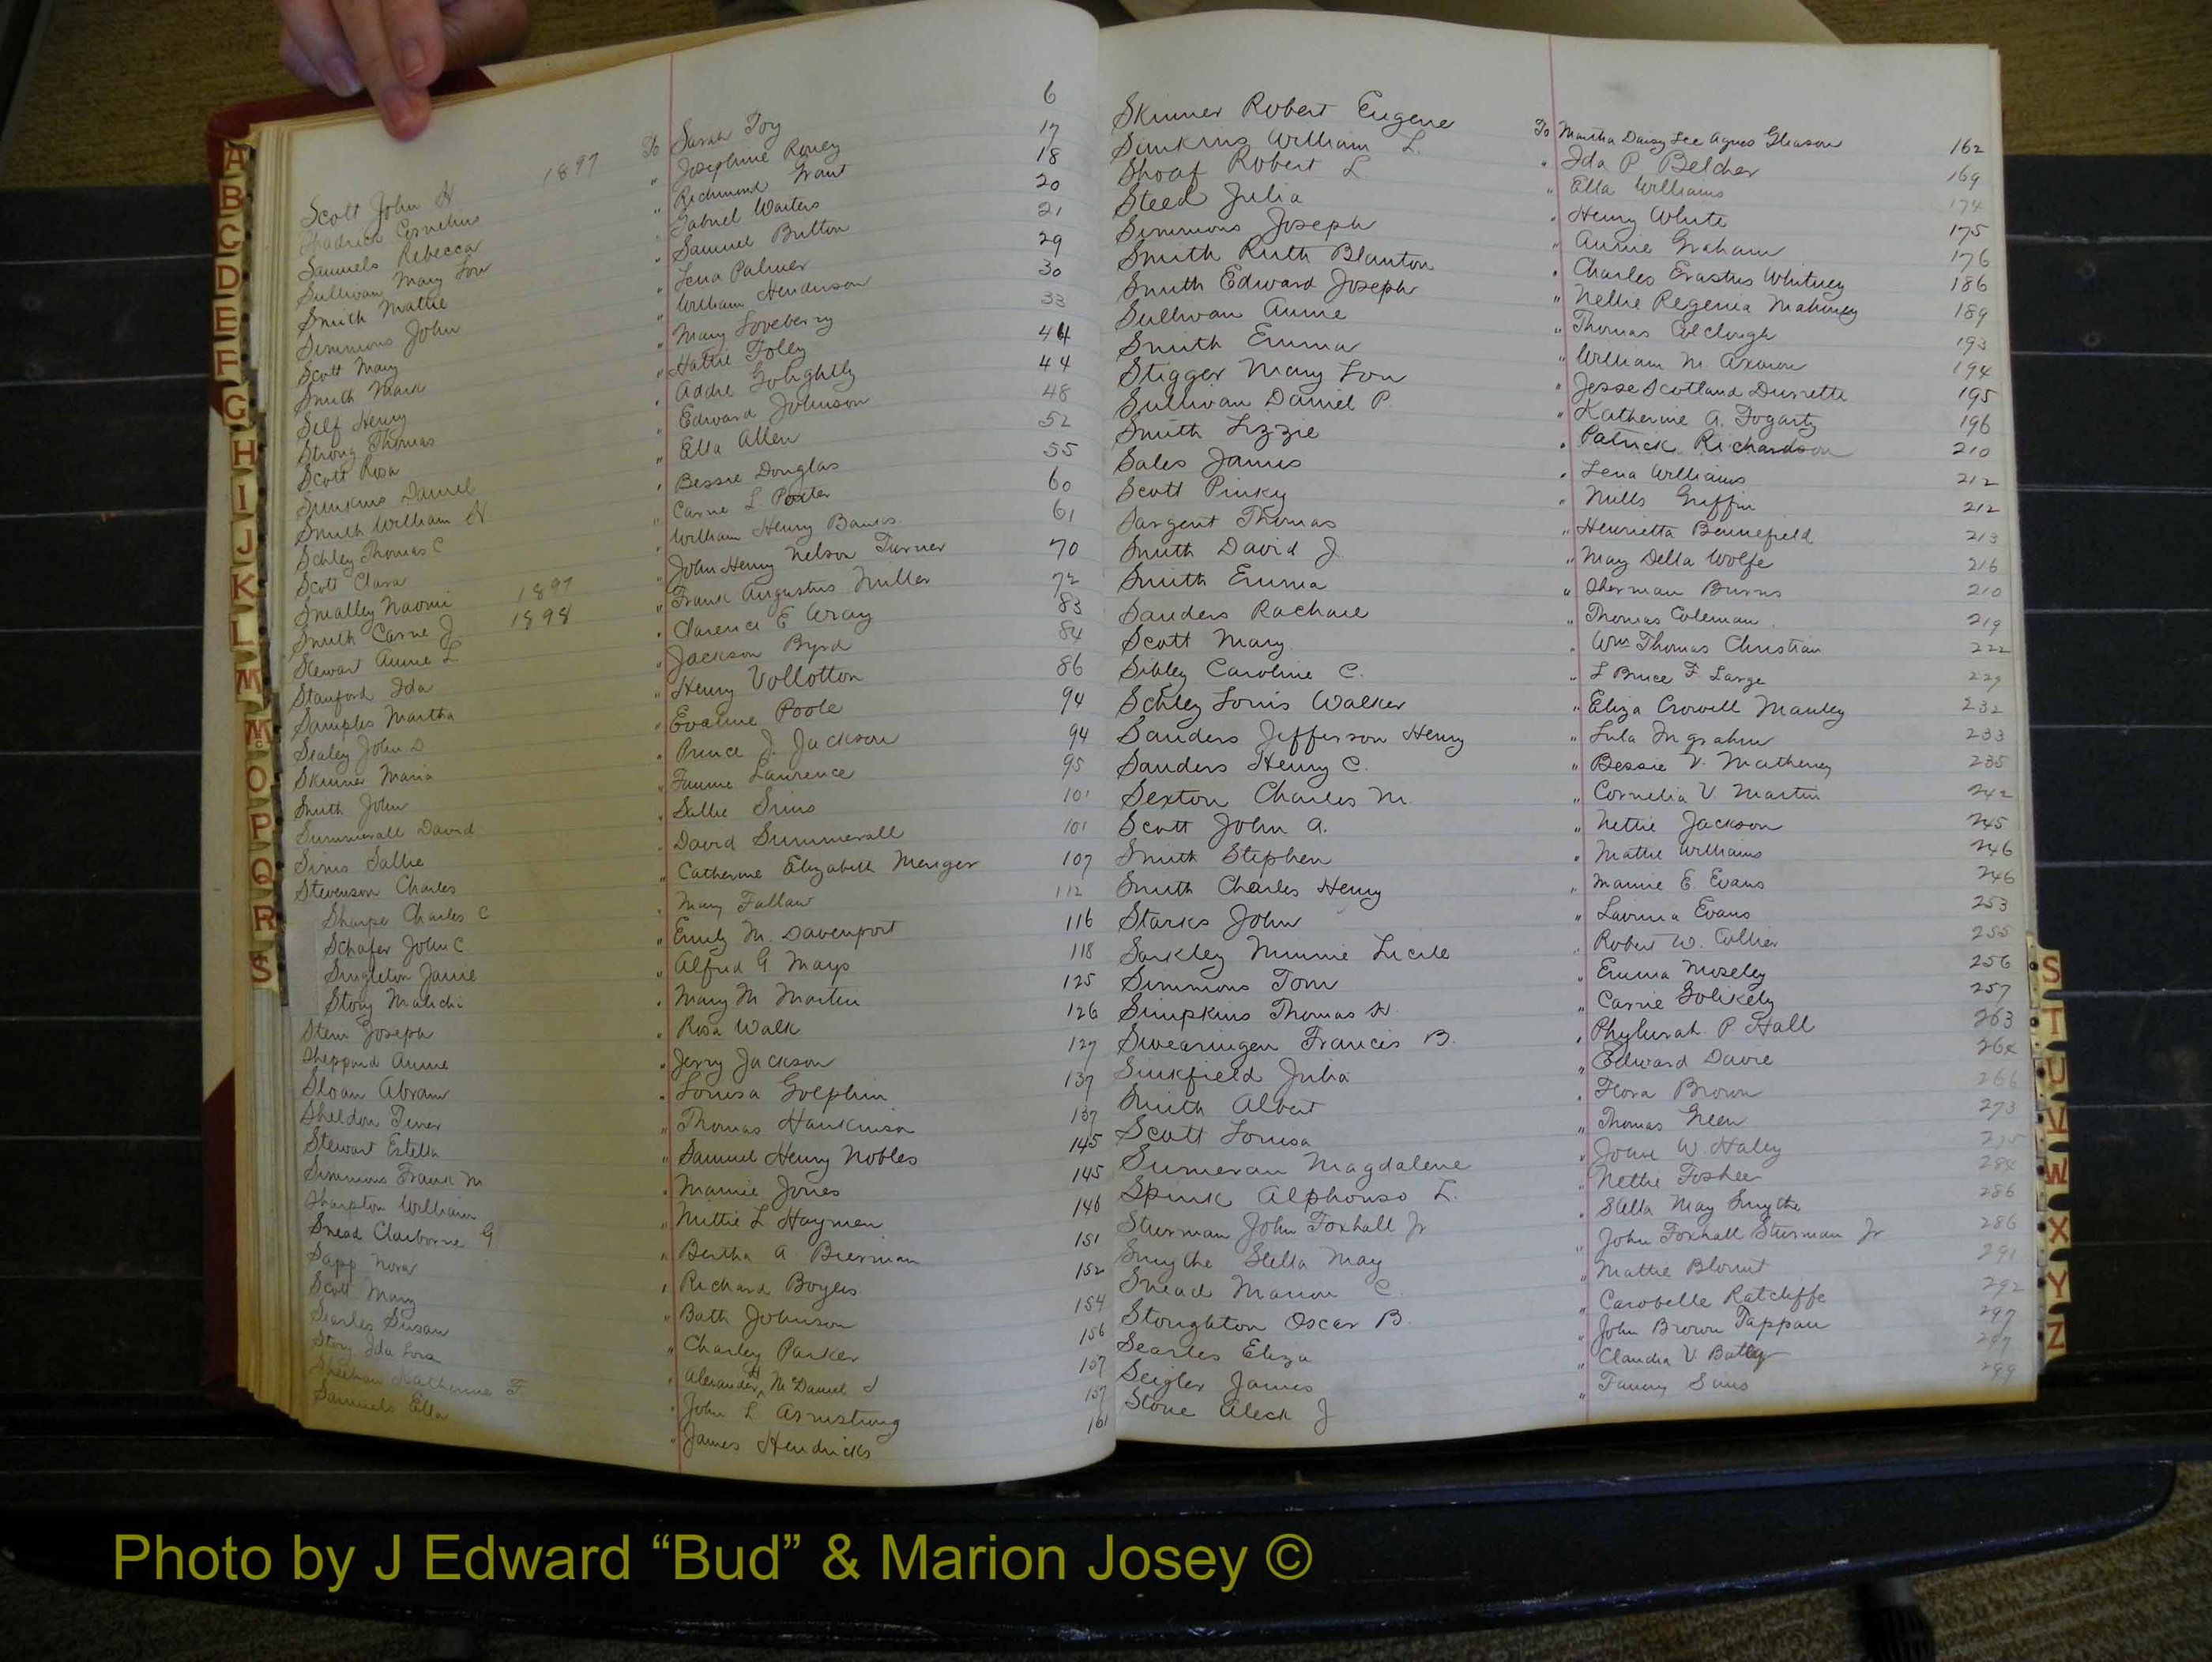 Scott John H 1897 To Sarah Toy 6
Shadrick Cornelius " Josephine Roney 17
Samuels Rebecca " Richmond Grant 18
Sullivan Mary Lou " Gabriel Waiters 20
Smith Mattie " Samuel Britton 21
Simmons John " Lena Palmer 29
Scott Mary " William Henderson 30
Smith Mark " Mary Loveberry 33
Self Henry " Hattie Foley 44
Strong Thomas " Addie Golightly 44
Scott Rosa " Edward Johnson 48
Simkins Daniel " Ella Allen 52
Smith William H " Bessie Douglas 55
Schley Thomas C " Carrie L. Porter 60
Scott Clara " William Henry Banks 61
Smalley Naomi 1897 " John Henry Nelson Turner 70
Smith Carrie J. 1898 " Frank Augustus Miller 72
Stewart Annie L " Clarence E Wray 83
Stanford Ida " Jackson Byrd 84
Samples Martha " Henry Vollotton 86
Sealey John D " Evaline Poole 94
Skinner Maria " Prince J. Jackson 94
Smith John " Fannie Lawrence 95
Summerall David " Sallie Sims 101
Sims Sallie " David Summerall 101
Stevenson Charles " Catherine Elizabeth Menger 107
Sharpe Charles C " Mary Fallaw 112
Schafer John C " Emily M. Davenport 116
Singleton Janie " Alfred G. Mays 118
Story Malichi " Mary M Martin 125
Stern Joseph " Rosa Walk 126
Sheppard Annie " Jerry Jackson 127
Sloan Abram " Louisa Golphin 137
Sheldon " Thomas Hankinson 137
Stewart Estella " Samuel Henry Nobles 145
Simmons Frank M " Mamie Jones 145
Sharpton William " Nittie L Haymen 146
Snead Claiborne G " Bertha A Bierman 151
Sapp Nora " Richard Boyles 152
Scott Mary " Bath Johnson 154
Searles Susan " Charley Parker 156
Story Ida Lora " Alexander H McDaniel 157
Sheehan Katherine F. " John L Armstrong 157
Samuels Ella " James Hendricks 161
Skinner Robert Eugene To Martha Daisy Lee Agnes Gleason 162
Simkins William L. " Ida P Belcher 169
Shoaf Robert L " Ella Williams 174
Steed Julia " Henry White 175
Simmons Joseph " Annie Graham 176
Smith Ruth Blanton " Charles Erastus Whitney 186
Smith Edward Joseph " Nellie Regenia Mahoney 189
Sullivan Annie " Thomas Colclough 193
Smith Emma " William M. Axson 194
Stigger Mary Lou " Jesse Scotland Durrette 195
Sullivan Daniel P " Katherine A. Fogarty 196
Smith Lizzie " Patrick Richardson 210
Sales James " Lena Williams 212
Scott Pinky " Mills Griffin 212
Sargent Thomas " Henrietta Bennefield 213
Smith David J. " May Della Wolfe 216
Smith Emma " Sherman Burns 210
Sanders Rachael " Thomas Coleman 219
Scott Mary " Wm Thomas Christian 222
Sibley Caroline C. " L Bruce F. Large 229
Schley Louis Walker " Eliza Crowell Manley 232
Sanders Jefferson Henry " Lula Ingrahm 233
Sanders Henry C. " Bessie V. Matheney 235
Sexton Charles M. " Cornelia V. Martin 242
Scott John A. " Nettie Jackson 245
Smith Stephen " Mattie Williams 246
Smith Charles Henry " Mamie E. Evans 246
Starks John " Lavinia Evans 253
Sarkley Minnie Lucile " Robert W. Collier 255
Simmons Tom " Emma Moseley 256
Simpkins Thomas H. " Carrie Golikely 257
Swearingen Francis B. " P Hall 263
Sinkfield Julia " Edward Davie 264
Smith Albert " Flora Brown 266
Scott Louisa " Thomas Green 273
Sumeran Magdalene " W. Haley 275
Spink Alphonso L. " Nettie Foshee 284
Stursman John Foxhall Jr " Stella May Smythe 286
Smythe Stella May " John Foxhall Stursman Jr 286
Snead Marion C. " Mattie Blount 291
Stoughton Oscar B. " Carobelle Ratcliffe 292
Searles Eliza " John Brown Tappan 297
Seigler James " Claudia V. Batley 297
Stone Aleck J " Fanny Sims 299
A
B
C
D
E
F
G
H
I
J
K
L
M
Mc
O
P
Q
R
S
S
T
U
V
W
X
Y
Z
Photo by J Edward “Bud” & Marion Josey ©